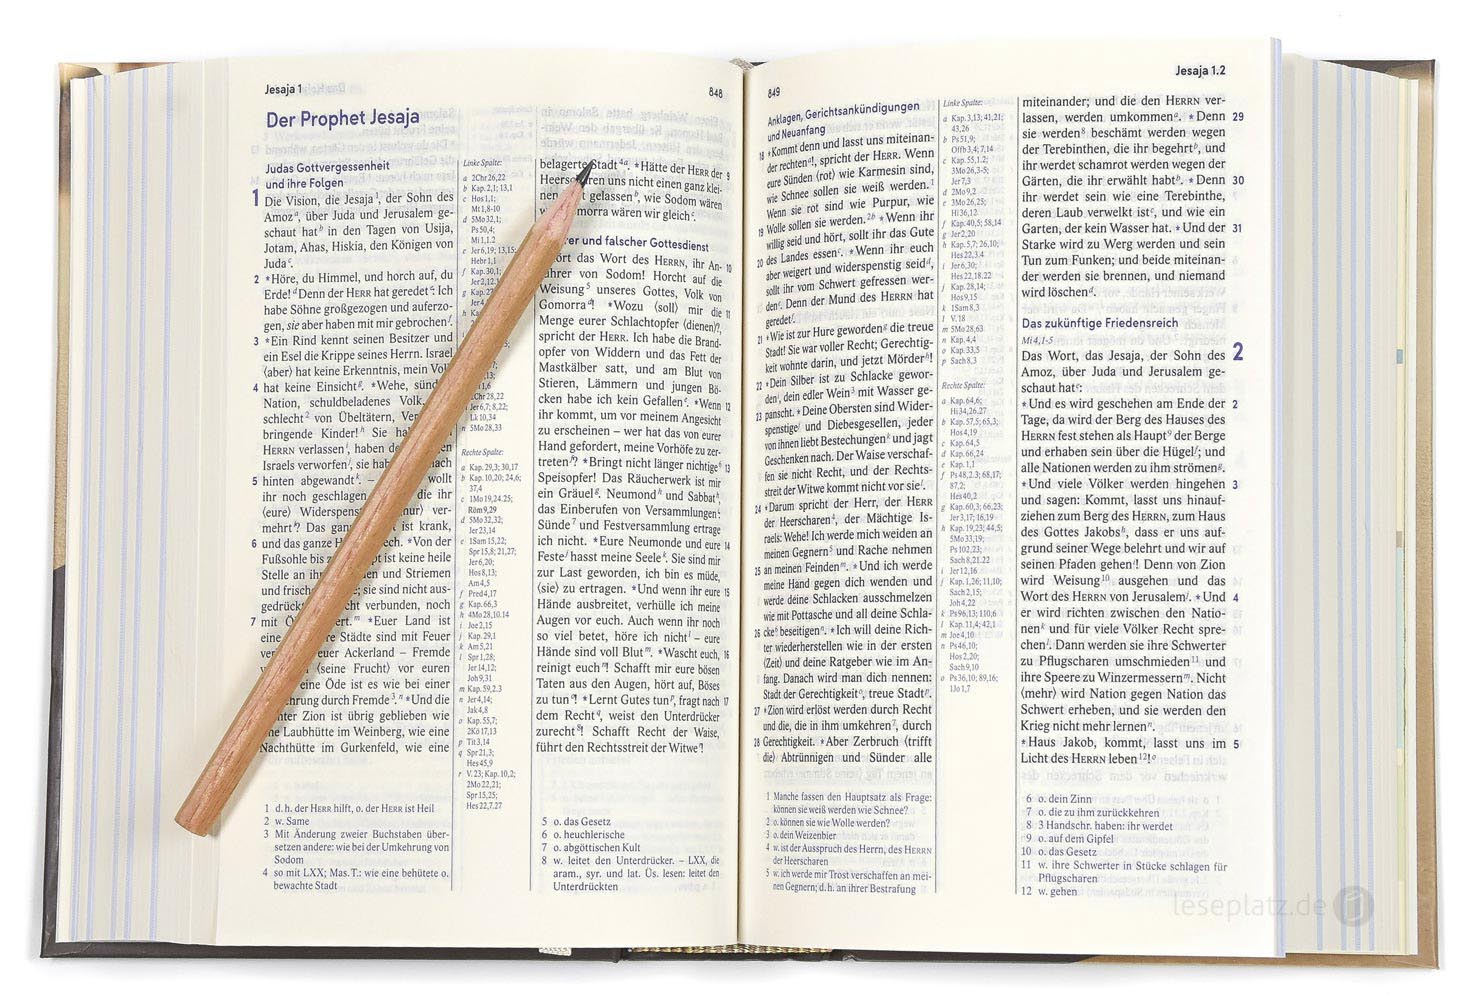 Jesaja 1
848
Der Prophet Jesaja
Judas Gottvergessenheit
und ihre Folgen
1 Die Vision, die Jesaja¹, der Sohn des
Amoz ᵃ, über Juda und Jerusalem ge-
schaut hat ᵇ in den Tagen von Usija,
Jotam, Ahas, Hiskia, den Königen von
Juda ᶜ.
2 *Höre, du Himmel, und horch auf, du
Erde! ᵈ Denn der HERR hat geredet ᵉ: Ich
habe Söhne großgezogen und auferzo-
gen, sie aber haben mit mir gebrochen ᶠ.
3 *Ein Rind kennt seinen Besitzer und
ein Esel die Krippe seines Herrn. Israel
⟨aber⟩ hat keine Erkenntnis, mein Volk
4 hat keine Einsicht ᵍ. *Wehe,
Nation, schuldbeladenes Volk,
schlecht ² von Übeltätern,
bringende Kinder! ʰ Sie
HERRN verlassen ⁱ, haben
Israels verworfen ʲ, sie nach
5 hinten abgewandt ᵏ. – wollt
ihr noch geschlagen die ihr
⟨eure⟩ ver-
mehrt ˡ? Das ist krank,
6 und das ganze *Von der
Fußsohle bis ist keine heile
Stelle an und Striemen
und sie sind nicht aus-
verbunden, noch
7 mit ᵐ *Euer Land ist
eine Städte sind mit Feuer
euer Ackerland – Fremde
⟨seine Frucht⟩ vor euren
eine Öde ist es wie bei einer
durch Fremde ³. ⁿ *Und die
Zion ist übrig geblieben wie
Laubhütte im Weinberg, wie eine
Nachthütte im Gurkenfeld, wie eine
1 d. h. der HERR hilft, o. der HERR ist Heil
2 w. Same
3 Mit Änderung zweier Buchstaben über-
setzen andere: wie bei der Umkehrung von
Sodom
4 so mit LXX; Mas. T.: wie eine behütete o.
bewachte Stadt
Linke Spalte:
a 2Chr 26,22
b Kap. 2,1; 13,1
c Hos 1,1;
Mi 1,1.8-10
d 5Mo 32,1;
Ps 50,4;
Mi 1,1.2
e Jer 6,19; 13,15;
Hebr 1,1
f Kap. 30,1;
Rechte Spalte:
a Kap. 29,3; 30,17
b Kap. 10,20; 24,6;
37,4
c 1Mo 19,24.25;
Röm 9,29
d 5Mo 32,32;
Jer 23,14
e 1Sam 15,22;
Spr 15,8; 21,27;
Jer 6,20;
Hos 8,13;
Am 4,5
f Pred 4,17
g Kap. 66,3
h 4Mo 28,10.14
i Joe 2,15
j Kap. 29,1
k Am 5,21
l Spr 1,28;
Jer 14,12;
Joh 9,31
m Kap. 59,2.3
n Jer 4,14;
Jak 4,8
o Kap. 55,7;
2Kö 17,13
p Tit 3,14
q Spr 21,3;
Hes 45,9
r V. 23; Kap. 10,2;
2Mo 22,21;
Spr 15,25;
Hes 22,7.27
belagerte Stadt ⁴ᵃ. *Hätte der HERR der 9
uns nicht einen ganz klei-
gelassen ᵇ, wie Sodom wären
wären wir gleich ᶜ.
und falscher Gottesdienst
das Wort des HERRN, ihr An- 10
von Sodom! Horcht auf die
Weisung ⁵ unseres Gottes, Volk von
Gomorra ᵈ! *Wozu ⟨soll⟩ mir die 11
Menge eurer Schlachtopfer ⟨dienen⟩?,
spricht der HERR. Ich habe die Brand-
opfer von Widdern und das Fett der
Mastkälber satt, und am Blut von
Stieren, Lämmern und jungen Bö-
cken habe ich kein Gefallen ᵉ. *Wenn 12
ihr kommt, um vor meinem Angesicht
zu erscheinen – wer hat das von eurer
Hand gefordert, meine Vorhöfe zu zer-
treten ᶠ? *Bringt nicht länger nichtige ⁶ 13
Speisopfer! Das Räucherwerk ist mir
ein Gräuel ᵍ. Neumond ʰ und Sabbat,
das Einberufen von Versammlungen ⁱ:
Sünde ⁷ und Festversammlung ertrage
ich nicht. *Eure Neumonde und eure 14
Feste ʲ hasst meine Seele ᵏ. Sie sind mir
zur Last geworden, ich bin es müde,
⟨sie⟩ zu ertragen. *Und wenn ihr eure 15
Hände ausbreitet, verhülle ich meine
Augen vor euch. Auch wenn ihr noch
so viel betet, höre ich nicht ˡ – eure
Hände sind voll Blut ᵐ. *Wascht euch, 16
reinigt euch ⁿ! Schafft mir eure bösen
Taten aus den Augen, hört auf, Böses
zu tun ᵒ! *Lernt Gutes tun ᵖ, fragt nach 17
dem Recht ᑫ, weist den Unterdrücker
zurecht ⁸! Schafft Recht der Waise,
führt den Rechtsstreit der Witwe ʳ!
5 o. das Gesetz
6 o. heuchlerische
7 o. abgöttischen Kult
8 w. leitet den Unterdrücker. – LXX, die
aram., syr. und lat. Üs. lesen: leitet den
Unterdrückten
849
Jesaja 1.2
Anklagen, Gerichtsankündigungen
und Neuanfang
18 *Kommt denn und lasst uns miteinan-
der rechten ᵃ!, spricht der HERR. Wenn
eure Sünden ⟨rot⟩ wie Karmesin sind,
wie Schnee sollen sie weiß werden. ¹
Wenn sie rot sind wie Purpur, wie
19 Wolle sollen sie werden. ²ᵇ *Wenn ihr
willig seid und hört, sollt ihr das Gute
20 des Landes essen ᶜ. *Wenn ihr euch
aber weigert und widerspenstig seid ᵈ,
sollt ihr vom Schwert gefressen wer-
den ᵉ. Denn der Mund des HERRN hat
geredet ᶠ.
21 *Wie ist zur Hure geworden ᵍ die treue
Stadt! Sie war voller Recht; Gerechtig-
keit wohnte darin, und jetzt Mörder ʰ!
22 *Dein Silber ist zu Schlacke gewor-
den ⁱ, dein edler Wein ³ mit Wasser ge-
23 panscht. *Deine Obersten sind Wider-
spenstige ʲ und Diebesgesellen, jeder
von ihnen liebt Bestechungen ᵏ und jagt
Geschenken nach. Der Waise verschaf-
fen sie nicht Recht, und der Rechts-
streit der Witwe kommt nicht vor sie ˡ.
24 *Darum spricht der Herr, der HERR
der Heerscharen ⁴, der Mächtige Is-
raels: Wehe! Ich werde mich weiden an
meinen Gegnern ⁵ und Rache nehmen
25 an meinen Feinden ᵐ. *Und ich werde
meine Hand gegen dich wenden und
werde deine Schlacken ausschmelzen
wie mit Pottasche und all deine Schla-
26 cke beseitigen ⁿ. *Ich will deine Rich-
ter wiederherstellen wie in der ersten
⟨Zeit⟩ und deine Ratgeber wie im An-
fang. Danach wird man dich nennen:
Stadt der Gerechtigkeit ᵒ, treue Stadt ᵖ.
27 *Zion wird erlöst werden durch Recht
und die, die in ihm umkehren ⁷, durch
28 Gerechtigkeit. *Aber Zerbruch ⟨trifft
die⟩ Abtrünnigen und Sünder alle
1 Manche fassen den Hauptsatz als Frage:
können sie weiß werden wie Schnee?
2 o. können sie wie Wolle werden?
3 o. dein Weizenbier
4 w. ist der Ausspruch des Herrn, des HERRN
der Heerscharen
5 w. ich werde mir Trost verschaffen an mei-
nen Gegnern; d. h. an ihrer Bestrafung
Linke Spalte:
a Kap. 3,13; 41,21;
43,26
b Ps 51,9;
Offb 3,4; 7,14
c Kap. 55,1.2;
3Mo 26,3-5;
Jer 7,3
d 2Mo 9,2
e 3Mo 26,25;
Hi 36,12
f Kap. 40,5; 58,14
g Jer 2,20
h Kap. 5,7; 26,10;
Hes 22,3.4
i Jer 6,30;
Hes 22,18.22
j Kap. 28,14;
Hos 9,15
k 1Sam 8,3
l V. 18
m 5Mo 28,63
n Kap. 4,4
o Kap. 33,5
p Sach 8,3
Rechte Spalte:
a Kap. 64,6;
Hi 34,26.27
b Kap. 57,5; 65,3;
Hos 4,19
c Kap. 64,5
d Kap. 66,24
e Kap. 1,1
f Ps 48,2.3; 68,17;
87,2;
Hes 40,2
g Kap. 60,3; 66,23;
Jer 3,17; 16,19
h Kap. 19,23; 44,5;
5Mo 33,19;
Ps 102,23;
Sach 8,21.22
i Jer 12,16
j Kap. 1,26; 11,10;
Sach 2,15;
Joh 4,22
k Ps 96,13; 110,6
l Kap. 11,4; 42,1
m Joe 4,10
n Ps 46,10;
Hos 2,20;
Sach 9,10
o Ps 36,10; 89,16;
1Jo 1,7
miteinander; und die den HERRN ver-
lassen, werden umkommen ᵃ. *Denn 29
sie werden ⁸ beschämt werden wegen
der Terebinthen, die ihr begehrt ᵇ, und
ihr werdet schamrot werden wegen der
Gärten, die ihr erwählt habt ᵇ. *Denn 30
ihr werdet sein wie eine Terebinthe,
deren Laub verwelkt ist ᶜ, und wie ein
Garten, der kein Wasser hat. *Und der 31
Starke wird zu Werg werden und sein
Tun zum Funken; und beide miteinan-
der werden sie brennen, und niemand
wird löschen ᵈ.
Das zukünftige Friedensreich
Mi 4,1-5
Das Wort, das Jesaja, der Sohn des 2
Amoz, über Juda und Jerusalem ge-
schaut hat ᵉ:
*Und es wird geschehen am Ende der 2
Tage, da wird der Berg des Hauses des
HERRN fest stehen als Haupt ⁹ der Berge
und erhaben sein über die Hügel ᶠ; und
alle Nationen werden zu ihm strömen ᵍ.
*Und viele Völker werden hingehen 3
und sagen: Kommt, lasst uns hinauf-
ziehen zum Berg des HERRN, zum Haus
des Gottes Jakobs ʰ, dass er uns auf-
grund seiner Wege belehrt und wir auf
seinen Pfaden gehen ⁱ! Denn von Zion
wird Weisung ¹⁰ ausgehen und das
Wort des HERRN von Jerusalem ʲ. *Und 4
er wird richten zwischen den Natio-
nen ᵏ und für viele Völker Recht spre-
chen ˡ. Dann werden sie ihre Schwerter
zu Pflugscharen umschmieden ¹¹ und
ihre Speere zu Winzermessern ᵐ. Nicht
⟨mehr⟩ wird Nation gegen Nation das
Schwert erheben, und sie werden den
Krieg nicht mehr lernen ⁿ.
*Haus Jakob, kommt, lasst uns im 5
Licht des HERRN leben ¹²! ᵒ
6 o. dein Zinn
7 o. die zu ihm zurückkehren
8 3 Handschr. haben: ihr werdet
9 o. auf dem Gipfel
10 o. das Gesetz
11 w. ihre Schwerter in Stücke schlagen für
Pflugscharen
12 w. gehen
leseplatz.de